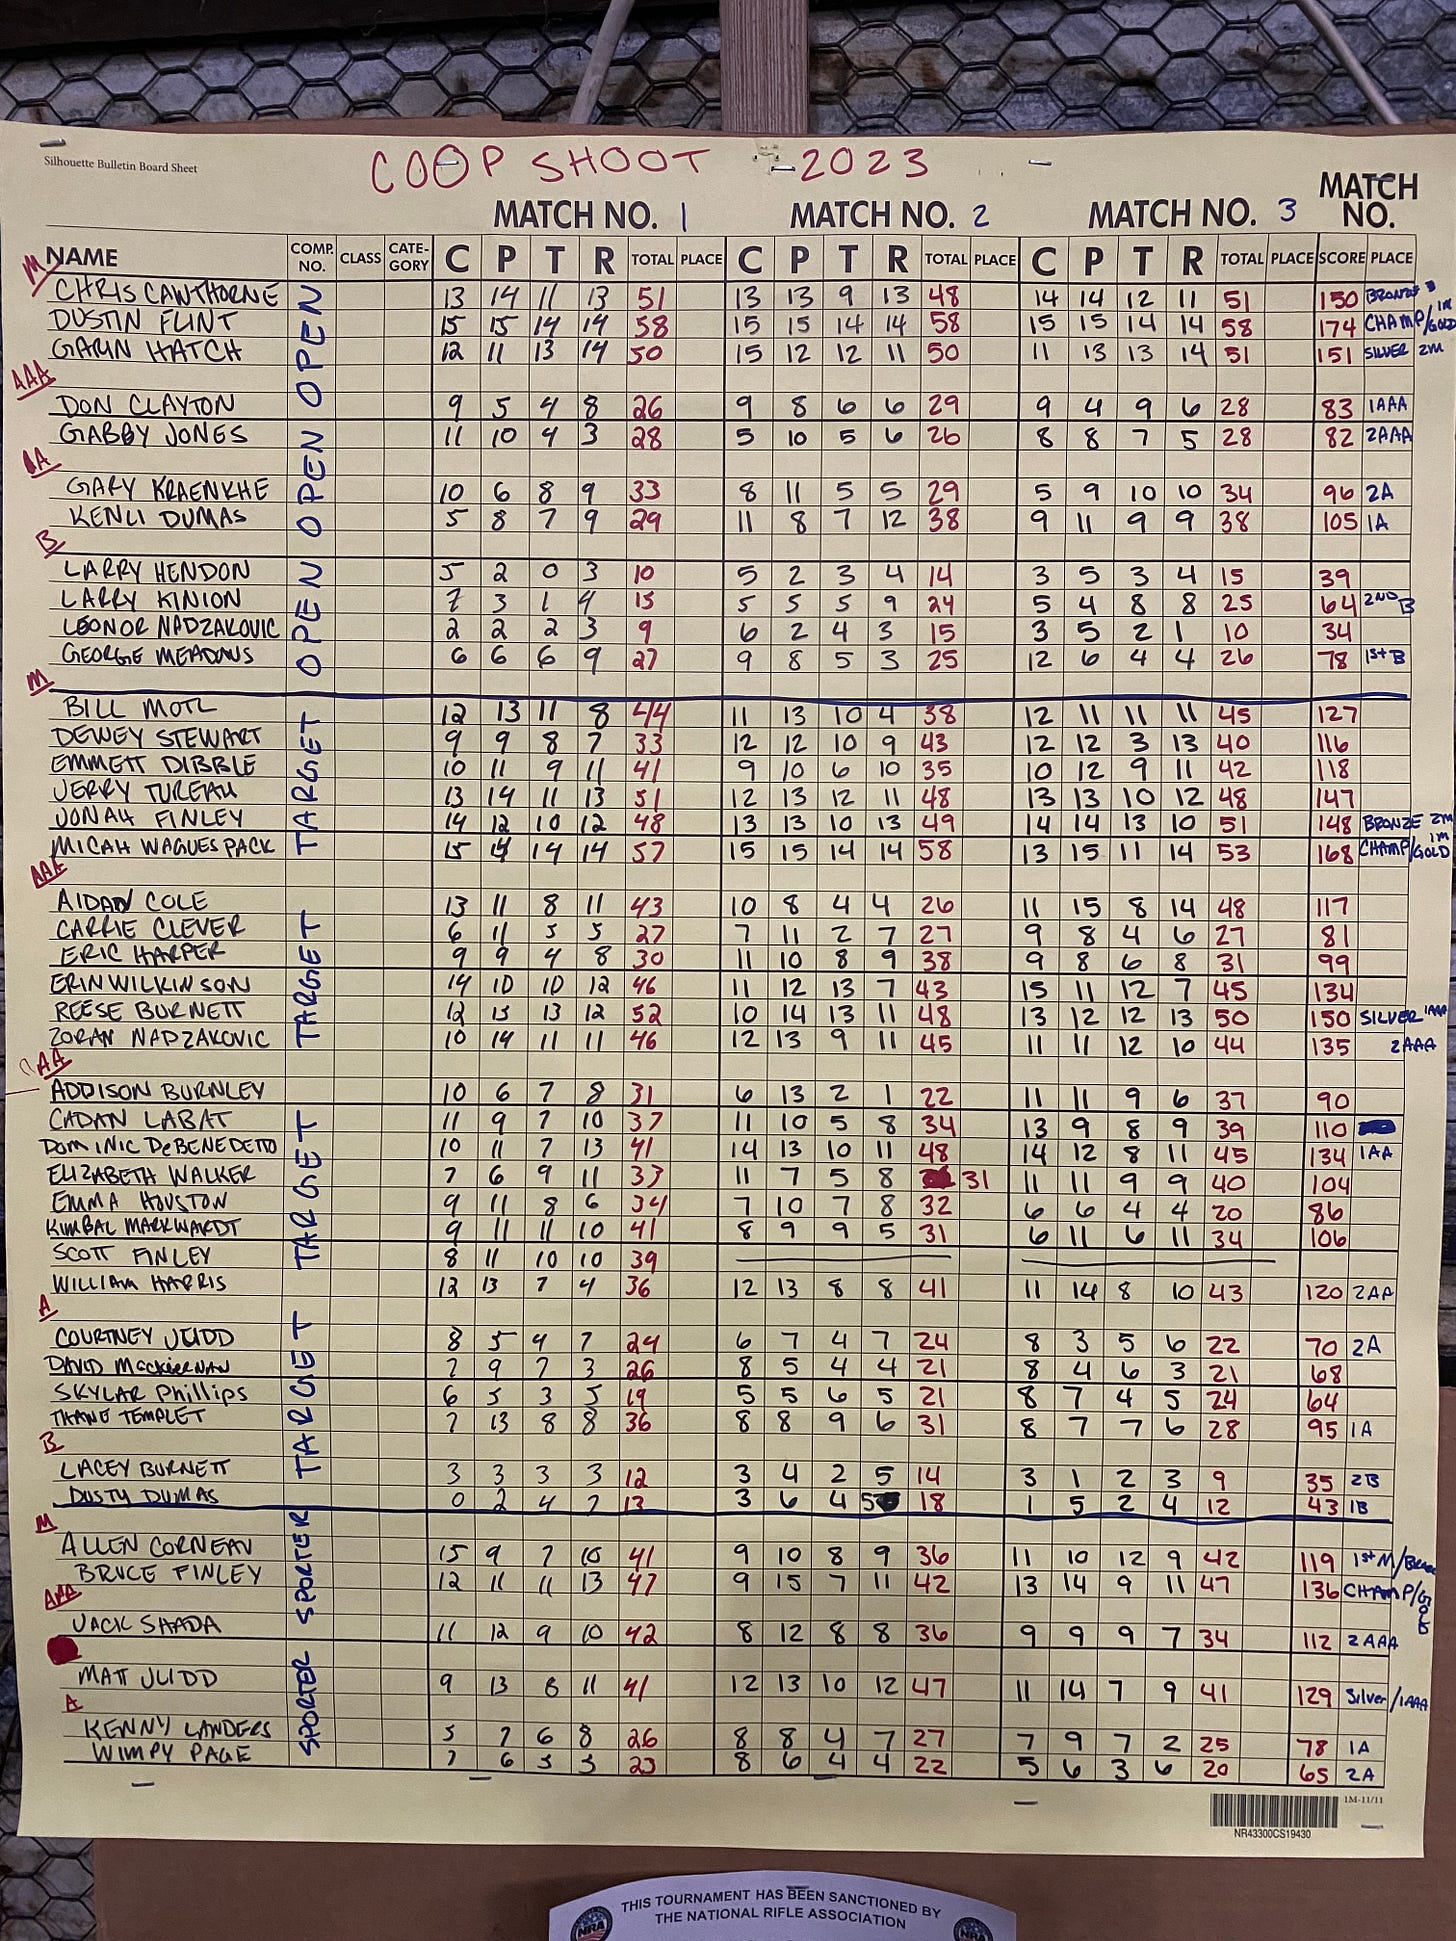 Silhouette Bulletin Board Sheet
COOP SHOOT - 2023
MATCH NO. 1 MATCH NO. 2 MATCH NO. 3 MATCH NO.
NAME COMP. NO. CLASS CATE-GORY C P T R TOTAL PLACE C P T R TOTAL PLACE C P T R TOTAL PLACE SCORE PLACE
M
CHRIS CAWTHORNE 13 14 11 13 51 13 13 9 13 48 14 14 12 11 51 150 BRONZE
DUSTIN FLINT 15 15 14 14 58 15 15 14 14 58 15 15 14 14 58 174 CHAMP/GOLD 1M
GARIN HATCH 12 11 13 14 50 15 12 12 11 50 11 13 13 14 51 151 SILVER 2M
OPEN
AAA
DON CLAYTON 9 5 4 8 26 9 8 6 6 29 9 4 9 6 28 83 1AAA
GABBY JONES 11 10 4 3 28 5 10 5 6 26 8 8 7 5 28 82 2AAA
OPEN
A
GARY KRAENKHE 10 6 8 9 33 8 11 5 5 29 5 9 10 10 34 96 2A
KENLI DUMAS 5 8 7 9 29 11 8 7 12 38 9 11 9 9 38 105 1A
B
LARRY HENDON 5 2 0 3 10 5 2 3 4 14 3 5 3 4 15 39
LARRY KINION 7 3 1 4 15 5 5 5 9 24 5 4 8 8 25 64 2ND B
LEONOR NADZAKOVIC 2 2 2 3 9 6 2 4 3 15 3 5 2 1 10 34
GEORGE MEADOWS 6 6 6 9 27 9 8 5 3 25 12 6 4 4 26 78 1st B
OPEN
M
BILL MOTL 12 13 11 8 44 11 13 10 4 38 12 11 11 11 45 127
DEWEY STEWART 9 9 8 7 33 12 12 10 9 43 12 12 3 13 40 116
EMMETT DIBBLE 10 11 9 11 41 9 10 6 10 35 10 12 9 11 42 118
JERRY TUREAU 13 14 11 13 51 12 13 12 11 48 13 13 10 12 48 147
JONAH FINLEY 14 12 10 12 48 13 13 10 13 49 14 14 13 10 51 148 BRONZE 2M
MICAH WAGUESPACK 15 14 14 14 57 15 15 14 14 58 13 15 11 14 53 168 CHAMP/GOLD 1M
TARGET
AAA
AIDAN COLE 13 11 8 11 43 10 8 4 4 26 11 15 8 14 48 117
CARRIE CLEVER 6 11 5 5 27 7 11 2 7 27 9 8 4 6 27 81
ERIC HARPER 9 9 4 8 30 11 10 8 9 38 9 8 6 8 31 99
ERIN WILKINSON 14 10 10 12 46 11 12 13 7 43 15 11 12 7 45 134
REESE BURNETT 12 15 13 12 52 10 14 13 11 48 13 12 12 13 50 150 SILVER 1AAA
ZORAN NADZAKOVIC 10 14 11 11 46 12 13 9 11 45 11 11 12 10 44 135 2AAA
TARGET
AA
ADDISON BURNLEY 10 6 7 8 31 6 13 2 1 22 11 11 9 6 37 90
CADAN LABAT 11 9 7 10 37 11 10 5 8 34 13 9 8 9 39 110
DOMINIC DeBENEDETTO 10 11 7 13 41 14 13 10 11 48 14 12 8 11 45 134 1AA
ELIZABETH WALKER 7 6 9 11 33 11 7 5 8 31 11 11 9 9 40 104
EMMA HOUSTON 9 11 8 6 34 7 10 7 8 32 6 6 4 4 20 86
KIMBAL MARKWARDT 9 11 11 10 41 8 9 9 5 31 6 11 6 11 34 106
SCOTT FINLEY 8 11 10 10 39
WILLIAM HARRIS 12 13 7 4 36 12 13 8 8 41 11 14 8 10 43 120 2AA
TARGET
A
COURTNEY JUDD 8 5 4 7 24 6 7 4 7 24 8 3 5 6 22 70 2A
DAVID MacKiERNAN 7 9 7 3 26 8 5 4 4 21 8 4 6 3 21 68
SKYLAR Phillips 6 5 3 5 19 5 5 6 5 21 8 7 4 5 24 64
THANE TEMPLET 7 13 8 8 36 8 8 9 6 31 8 7 7 6 28 95 1A
TARGET
B
LACEY BURNETT 3 3 3 3 12 3 4 2 5 14 3 1 2 3 9 35 2B
DUSTY DUMAS 0 2 4 7 13 3 6 4 5 18 1 5 2 4 12 43 1B
M
ALLEN CORNEAU 15 9 7 10 41 9 10 8 9 36 11 10 12 9 42 119 1st M/
BRUCE FINLEY 12 11 11 13 47 9 15 7 11 42 13 14 9 11 47 136 CHAMP/GOLD
SPORTER
AAA
JACK SHADA 11 12 9 10 42 8 12 8 8 36 9 9 9 7 34 112 2AAA
MATT JUDD 9 13 8 11 41 12 13 10 12 47 11 14 7 9 41 129 Silver/1AAA
SPORTER
A
KENNY LANDERS 5 7 6 8 26 8 8 4 7 27 7 9 7 2 25 78 1A
WIMPY PAGE 7 6 5 5 23 8 6 4 4 22 5 6 3 6 20 65 2A
1M-11/11
NR43300CS19430
THIS TOURNAMENT HAS BEEN SANCTIONED BY
THE NATIONAL RIFLE ASSOCIATION
NRA